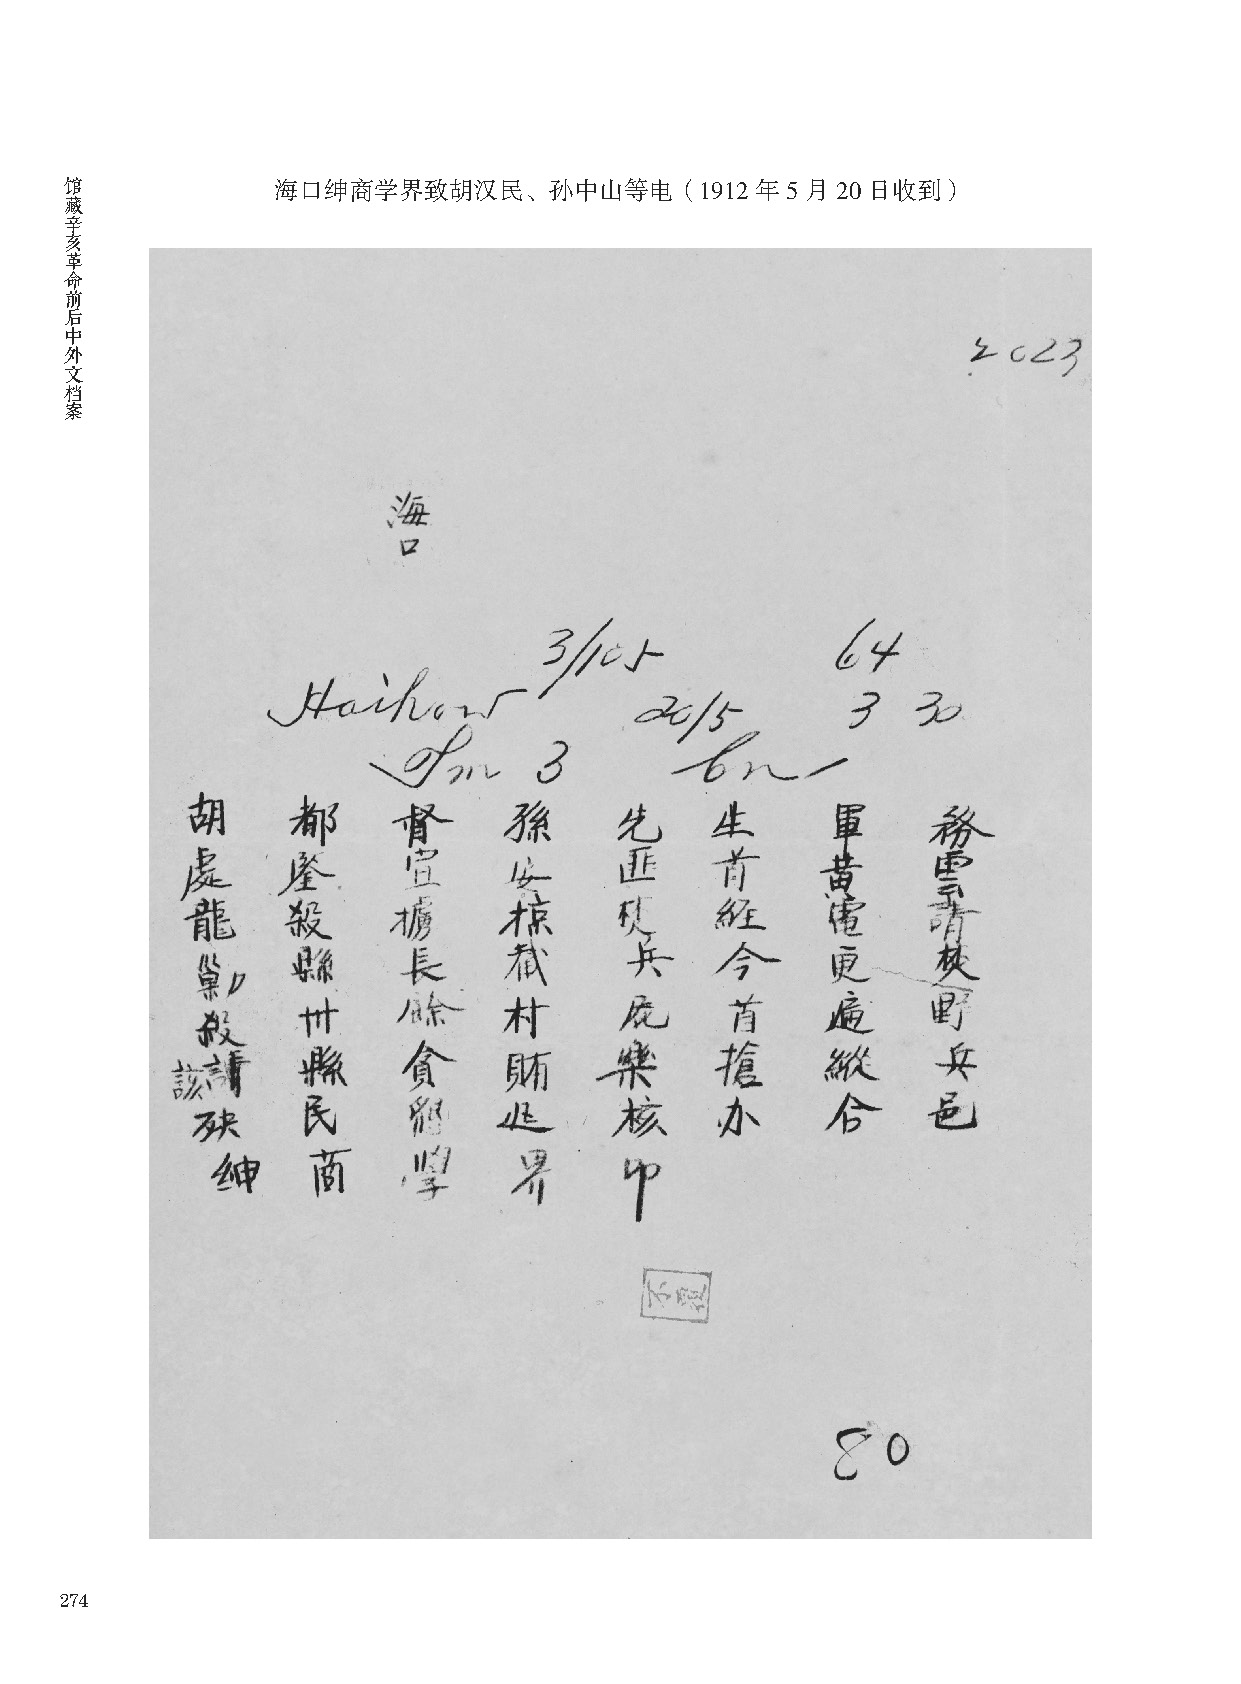 馆藏辛亥革命前后中外文档案
海口绅商学界致胡汉民、孙中山等电（1912年5月20日收到）
2023
海口
3/105 64
Haihow 20/5 3 30
Sm 3 bn
胡都督孫先生軍務
處鋻宣安匪首黃雲
龍殺擄掠焚經電請
剿縣長截兵今更焚
殺卅餘村屍首遍野
該縣貪賄樂搶縱兵
殃民懇迅核办合邑
紳商學界叩
80
274